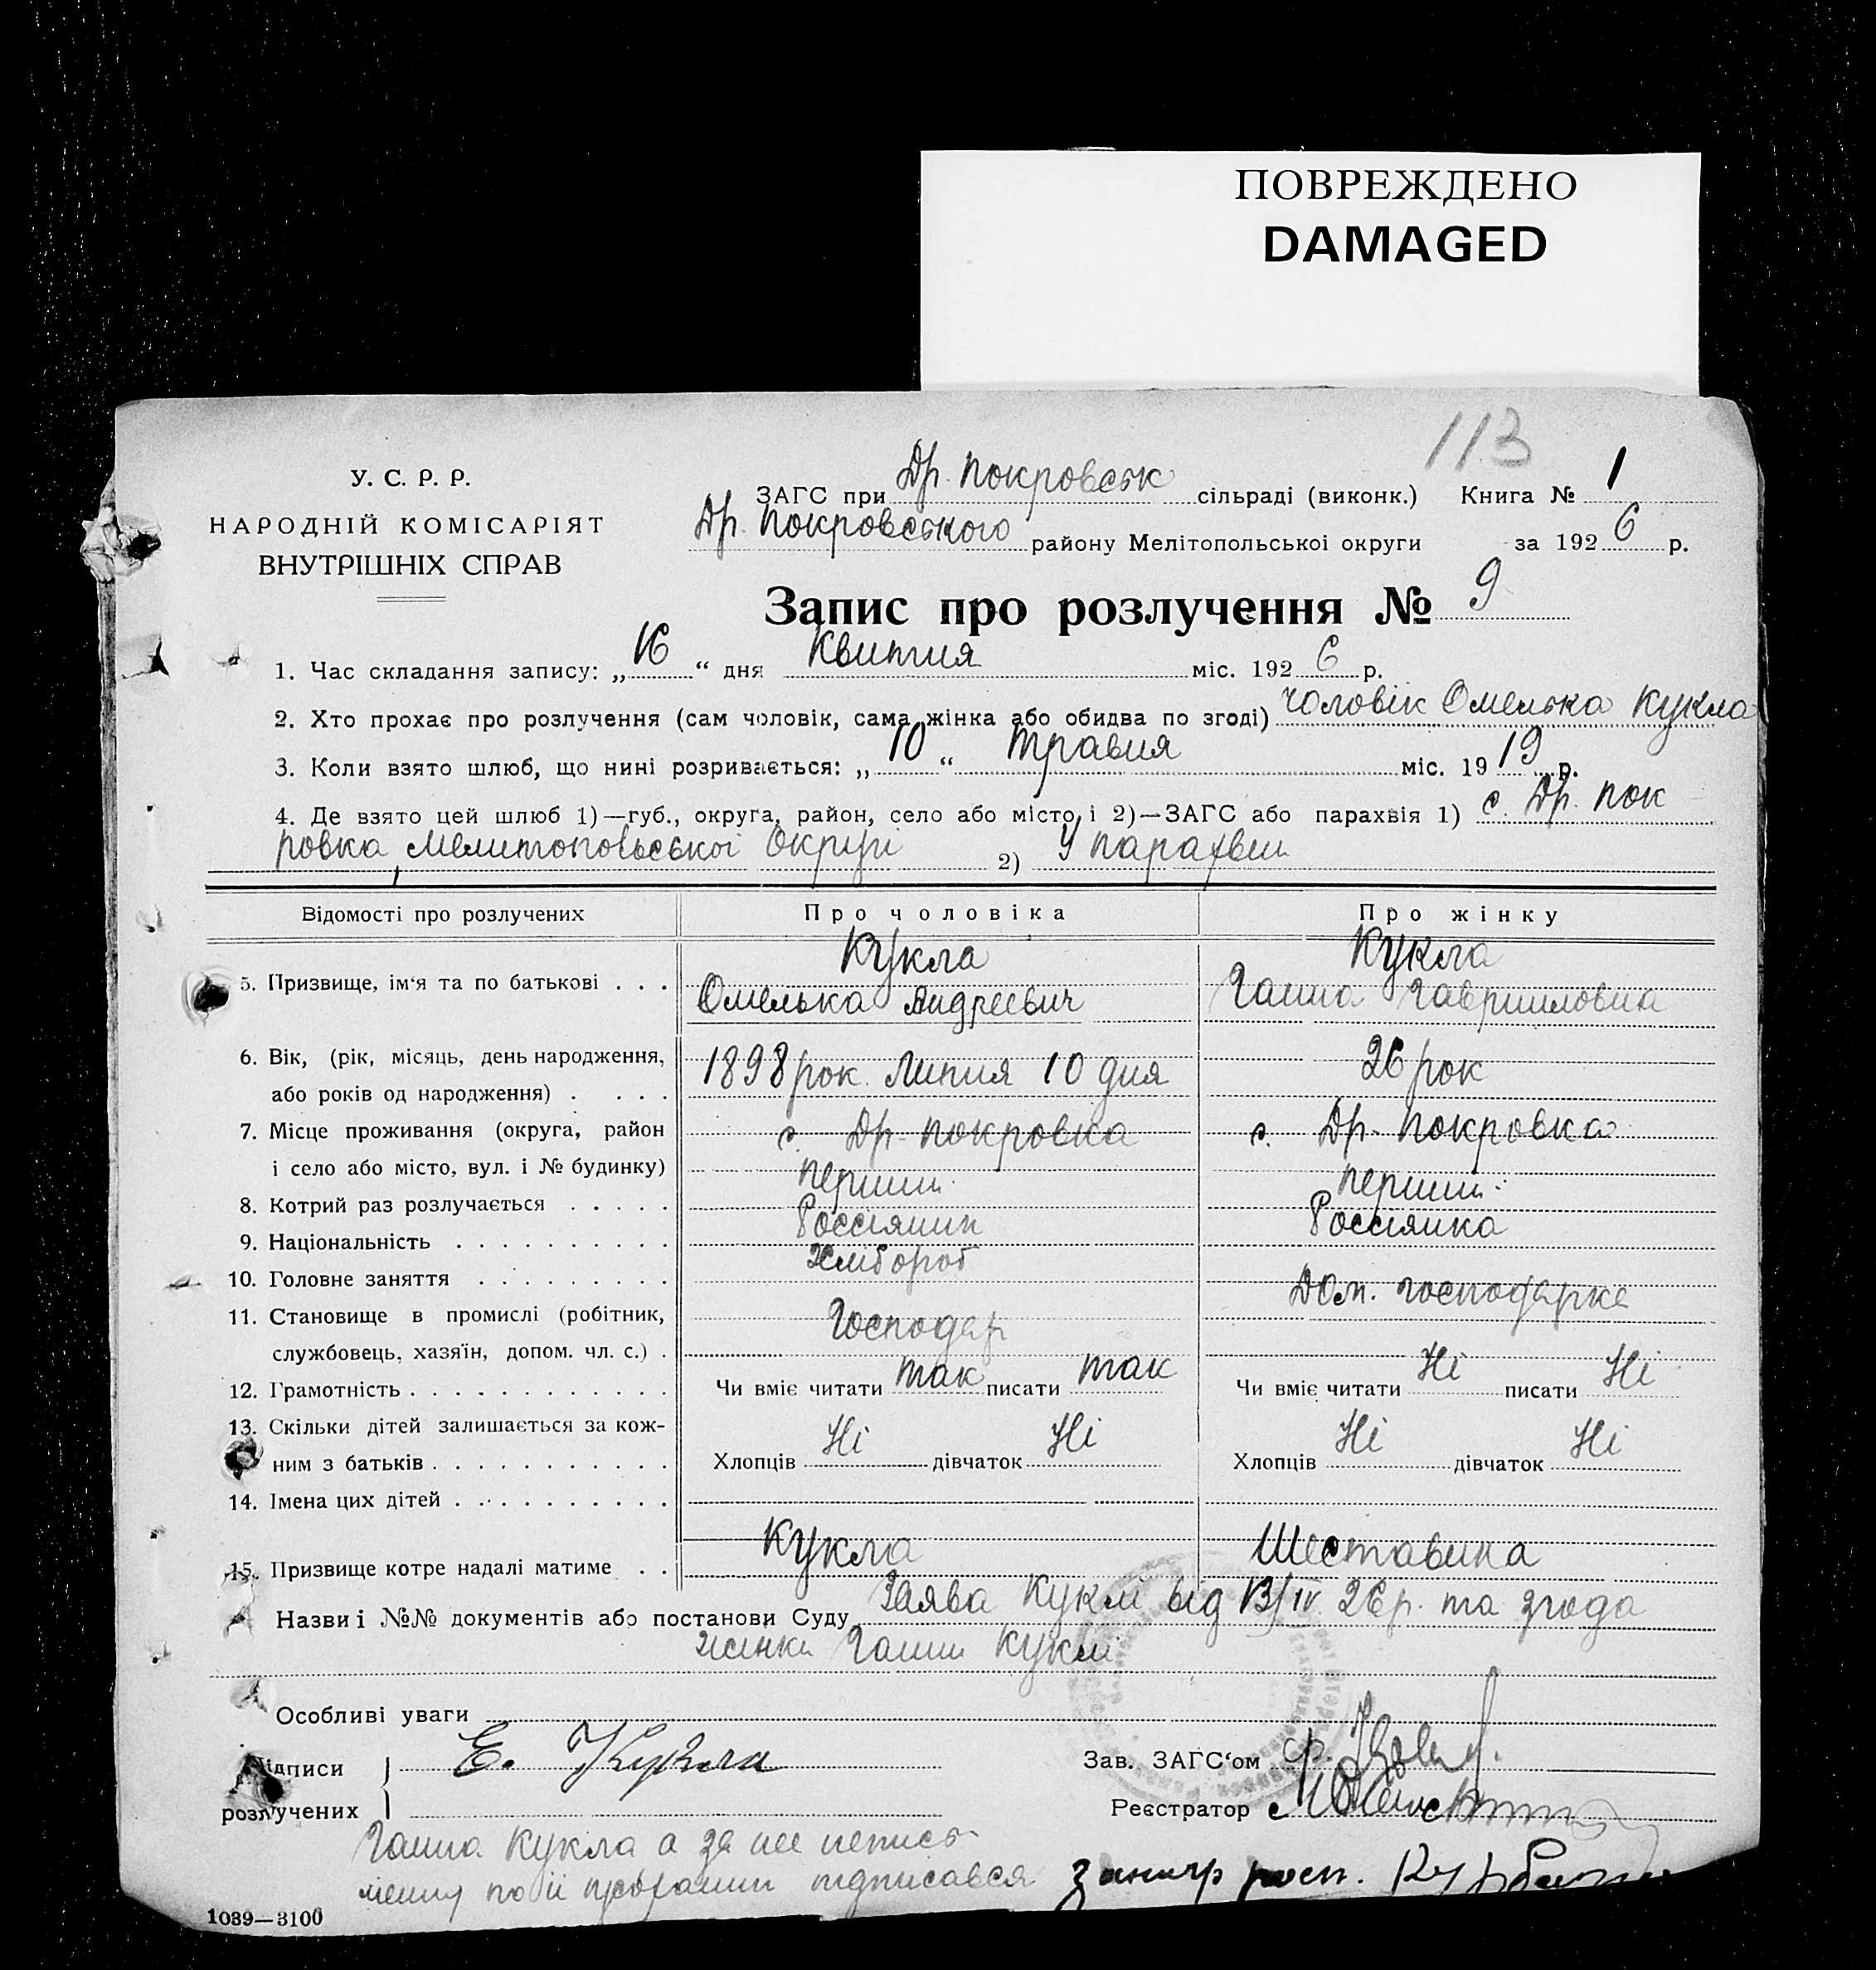 ПОВРЕЖДЕНО
DAMAGED
113
У. С. Р. Р.
НАРОДНІЙ КОМІСАРІЯТ
ВНУТРІШНІХ СПРАВ
ЗАГС при Др. Покровськ сільраді (виконк.) Книга № 1
Др. Покровського району Мелітопольської округи за 1926 р.
Запис про розлучення № 9
1. Час складання запису: „16“ дня Квитня міс. 1926 р.
2. Хто прохає про розлучення (сам чоловік, сама жінка або обидва по згоді) чоловік Омелька Кукла
3. Коли взято шлюб, що нині розривається: „10“ травня міс. 1919 р.
4. Де взято цей шлюб 1)—губ., округа, район, село або місто і 2)—ЗАГС або парахвія 1) с. Др. Пок
ровка, Мелитопольської Округі 2) У парахвии
Відомості про розлучених Про чоловіка Про жінку
Кукла Кукла
5. Призвище, ім‘я та по батькові . . . Омелька Андреевич Ганна Гаврииловна
6. Вік, (рік, місяць, день народження, 1898 рок. Липня 10 дня 26 рок
або років од народження) . . . .
7. Місце проживання (округа, район с. Др. Покровка с. Др. Покровка
і село або місто, вул. і № будинку)
8. Котрий раз розлучається . . . . . перший перший
9. Національність . . . . . . . . . . Россіянин Россіянка
10. Головне заняття . . . . . . . . . Хлібороб Дом. господарка
11. Становище в промислі (робітник, Господар
службовець, хазяїн, допом. чл. с.) .
12. Грамотність . . . . . . . . . . . . Чи вміє читати так писати так Чи вміє читати Ні писати Ні
13. Скільки дітей залишається за кож-
ним з батьків . . . . . . . . . . . Хлопців Ні дівчаток Ні Хлопців Ні дівчаток Ні
14. Імена цих дітей . . . . . . . . . .
15. Призвище котре надалі матиме . . Кукла Шеставина
Назви і №№ документів або постанови Суду Заява Куклі від 13/IV 26 р. та згода
жінки Ганни Куклі
Особливі уваги
Підписи Е. Кукла Зав. ЗАГС‘ом
розлучених Реєстратор
Ганна Кукла а за нее неписьменну по її проханни підписався
1039—3100